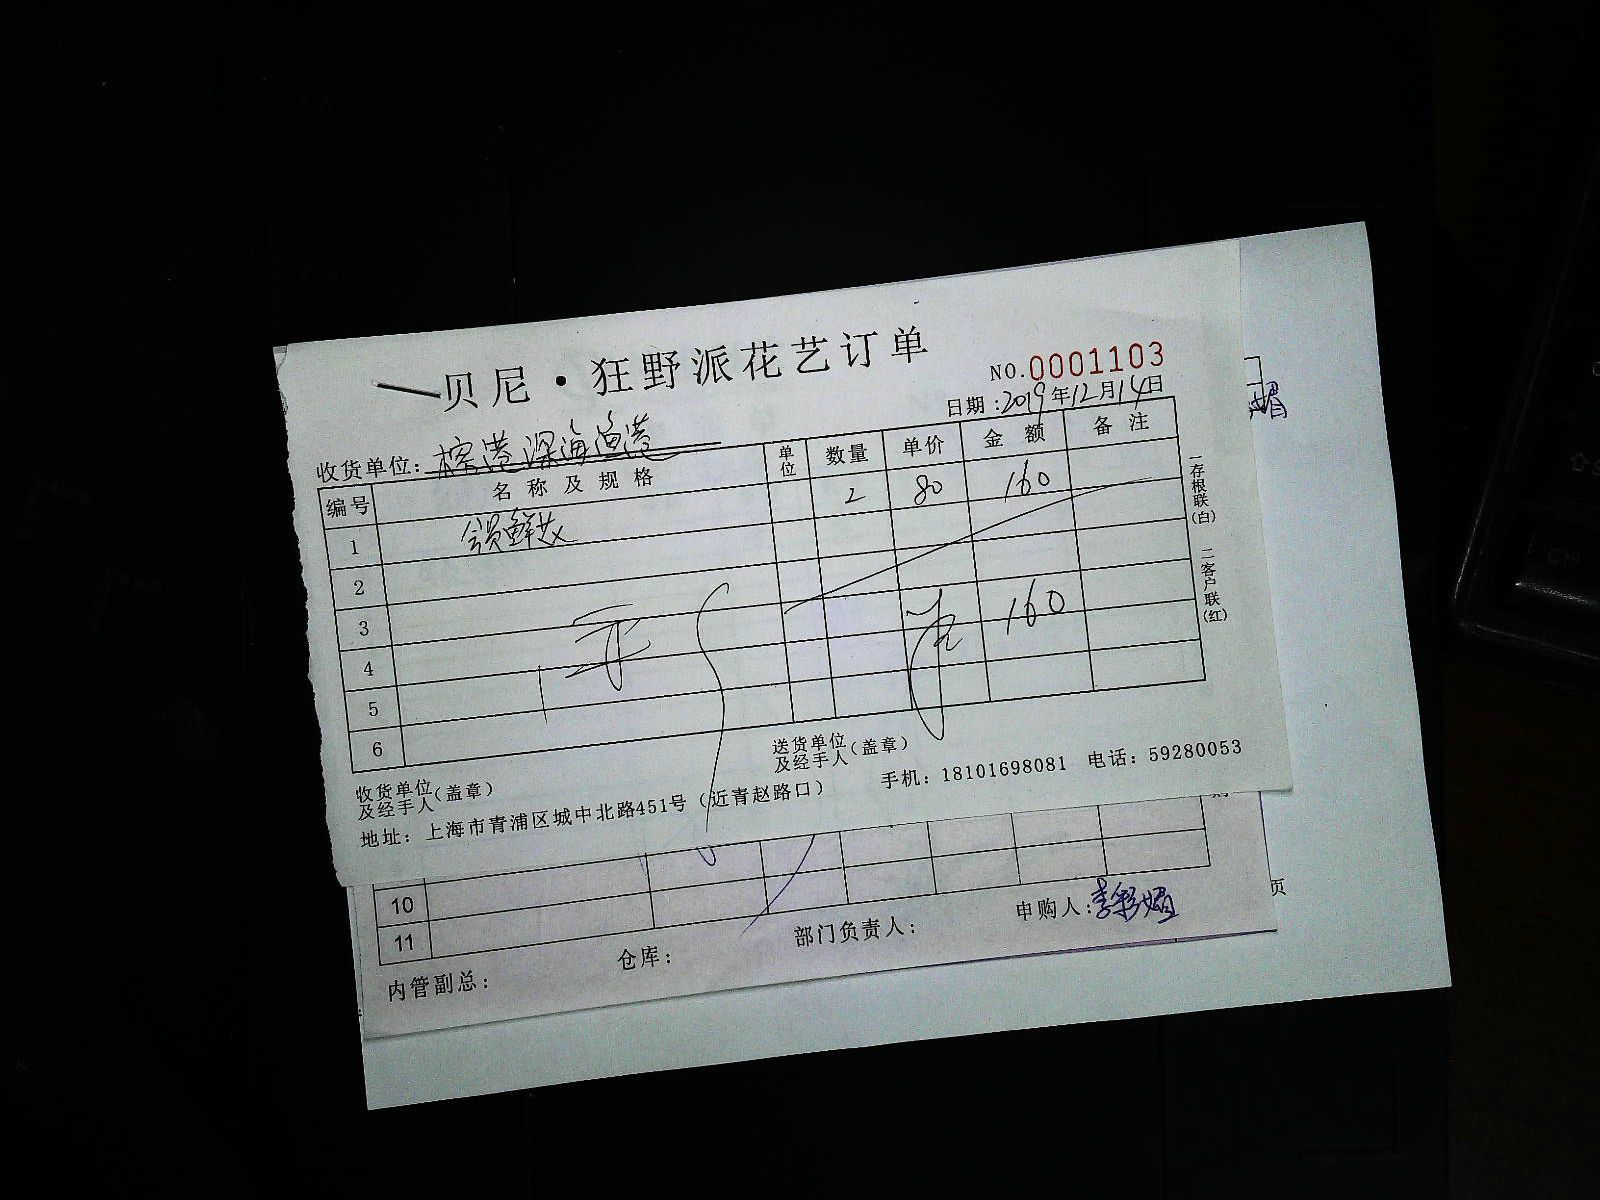 贝尼·狂野派花艺订单
NO.0001103
日期:2019年12月14日
收货单位:棕港深海渔港
编号 名称及规格 单位 数量 单价 金额 备注
1 会员鲜花 2 80 160
2
3
4 160
5
6
一存根联(白) 二客户联(红)
收货单位及经手人(盖章)
送货单位及经手人(盖章)
地址:上海市青浦区城中北路451号(近青赵路口) 手机:18101698081 电话:59280053
10
11
内管副总: 仓库: 部门负责人: 申购人:李彩媚
媚
页